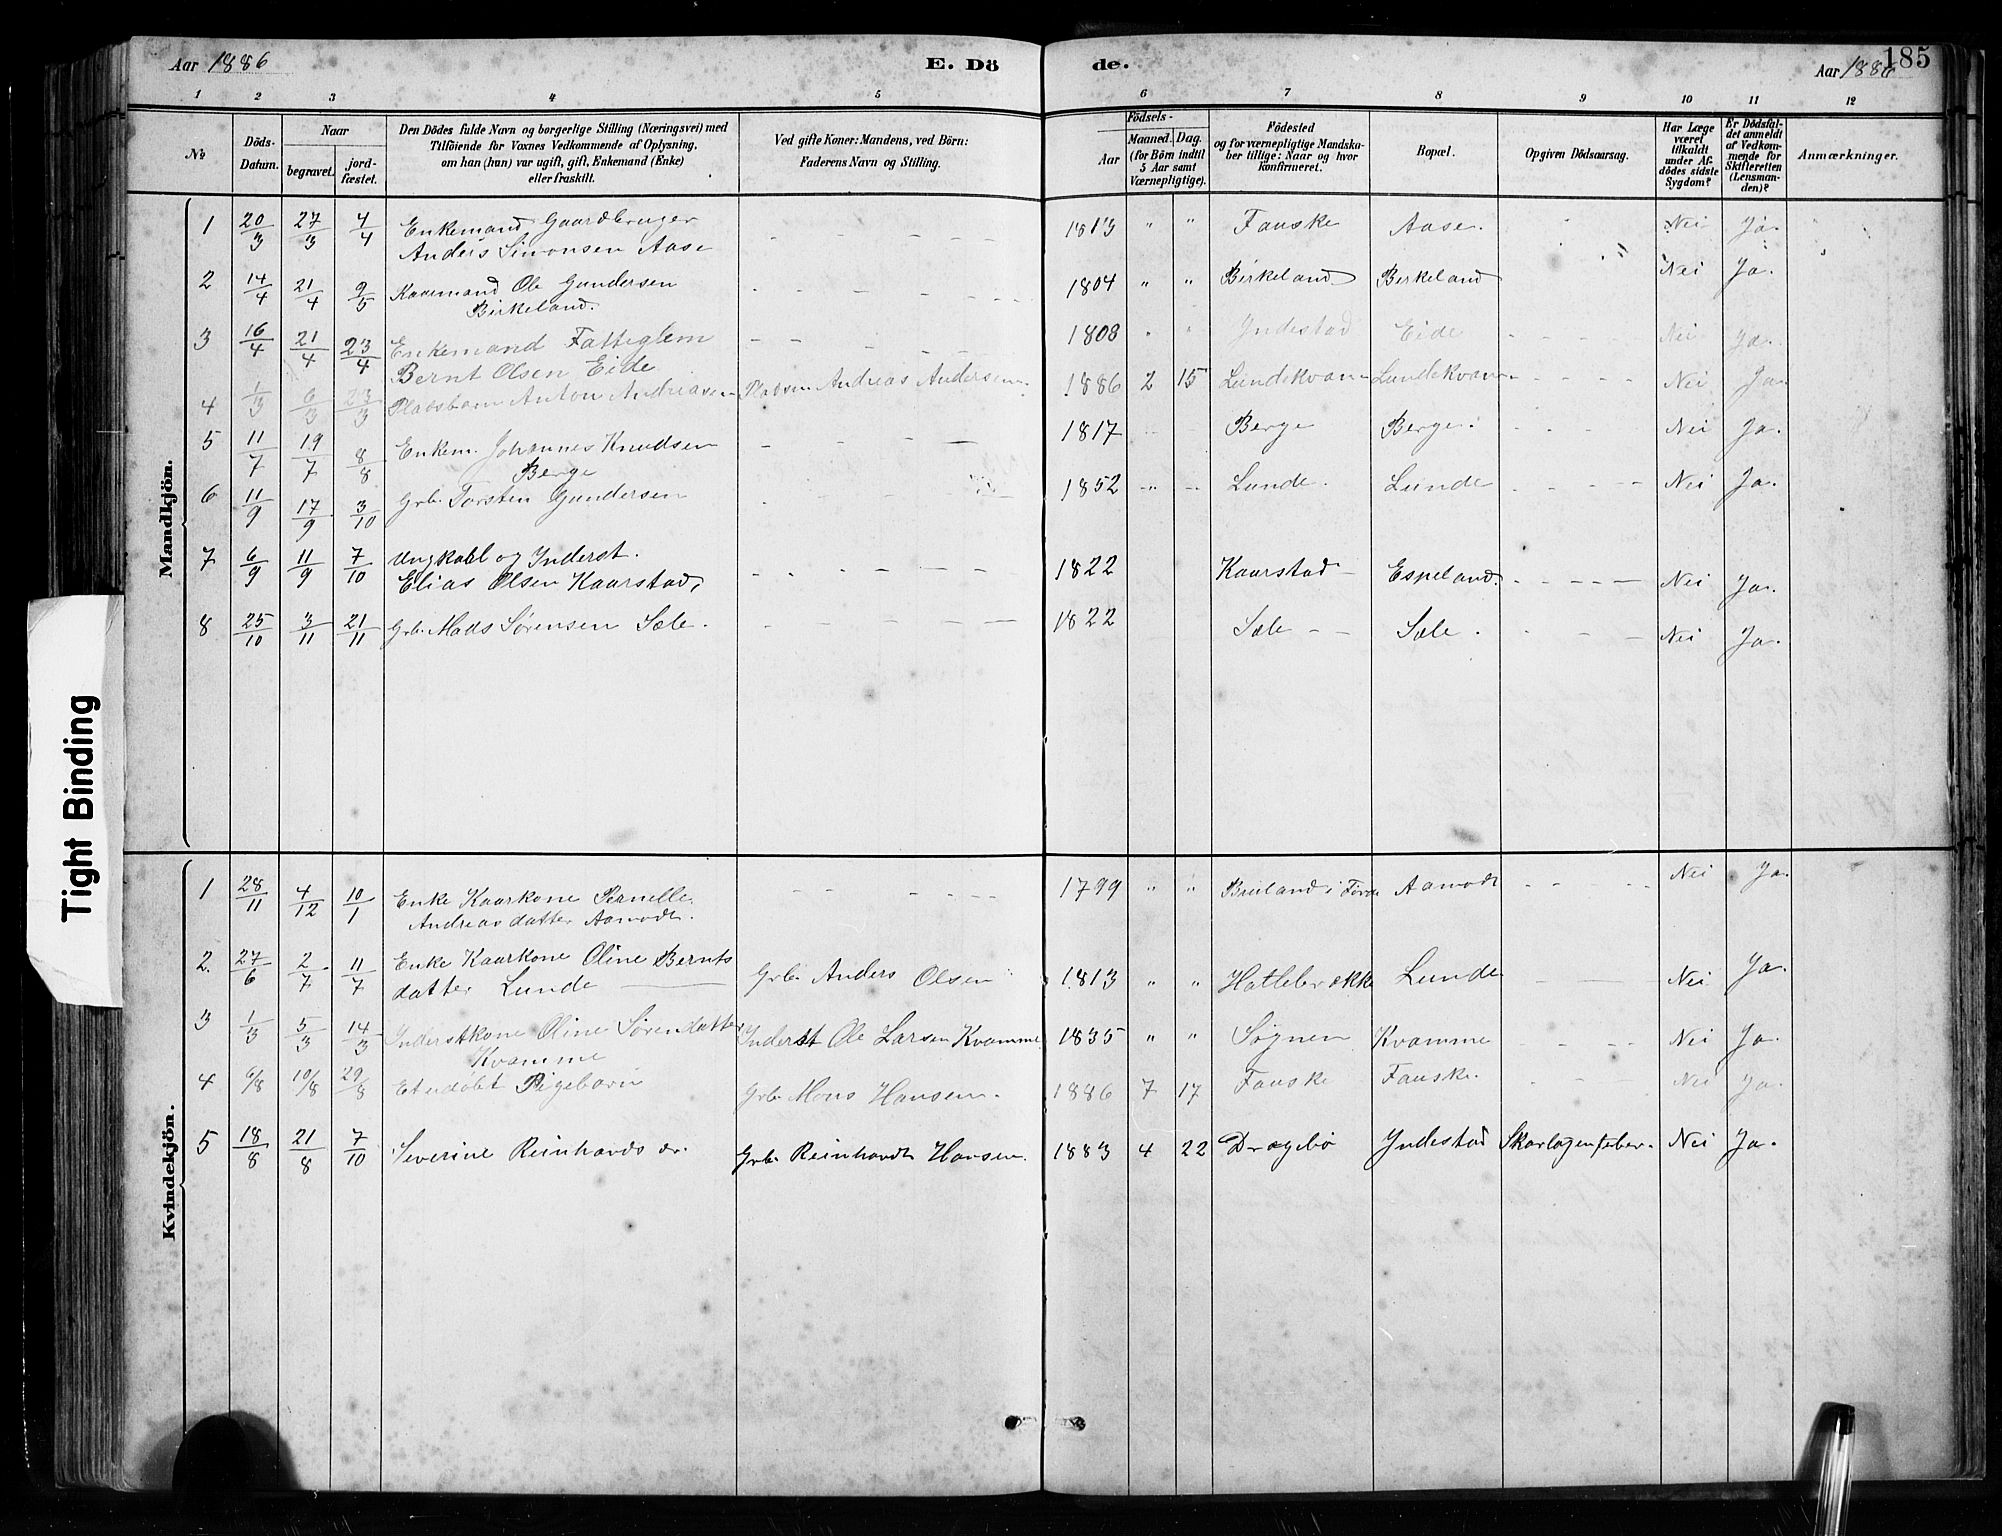 Aar 1886
E. Dö
de.
Aar 1886
185
1 2 3 4 5 6 7 8 9 10 11 12
No
Döds-Datum.
Naar
begravet.
jordfæstet.
Den Dödes fulde Navn og borgerlige Stilling (Næringsvei) med
Tilföiende for Voxnes Vedkommende af Oplysning,
om han (hun) var ugift, gift, Enkemand (Enke)
eller fraskilt.
Ved gifte Koner: Mandens, ved Börn:
Faderens Navn og Stilling.
Födsels-
Aar
Maaned. Dag.
(for Börn indtil
5 Aar samt
Værnepligtige).
Födested
og for værnepligtige Mandska-
ber tillige: Naar og hvor
konfirmeret.
Bopæl.
Opgiven Dödsaarsag.
Har Læge
været
tilkaldt
under Af-
dödes sidste
Sygdom?
Er Dödsfal-
det anmeldt
af Vedkom-
mende for
Skifteretten
(Lensman-
den)?
Anmærkninger.
Mandkjön.
1 20/3 27/3 4/4 Enkemand, Gaardbruger - - - 1813 " " Fauske Aase Nei Ja.
Anders Simonsen Aase
2 14/4 21/4 9/5 Kaarmand Ole Gundersen - - - 1804 " " Birkeland Birkeland Nei Ja.
Birkeland.
3 16/4 21/4 23/4 Enkemand Fattiglem - - - 1808 " " Yndestad Eide - - - Nei Ja.
Bernt Olsen Eide
4 1/3 6/3 23/3 Pladsbarn Anton Andreasen Pladsm. Andreas Andersen 1886 2 15 Lundekvam Lundekvam Nei Ja
5 11/7 19/7 8/8 Enkem. Johannes Knudsen - - - 1817 Berge Berge. Nei Ja.
Berge
6 11/9 17/9 3/10 Grb. Torsten Gundersen - - - 1852 Lunde. Lunde - - - Nei Ja.
7 6/9 11/9 7/10 Ungkarl og Inderst. - - - 1822 Kaarstad Espeland. - - - Nei Ja.
Elias Olsen Kaarstad,
8 25/10 3/11 21/11 Grb. Mads Sørensen Sæle. - - - 1822 Sæle - - Sæle. - - - Nei Ja.
Kvindekjön.
1 28/11 4/12 10/1 Enke Kaarkone Pernelle - - - 1799 " " Bruland i Førde Aamodt - - - Nei Ja.
Andreasdatter Aamodt.
2. 27/6 2/7 11/7 Enke Kaarkone Oline Bernts
datter Lunde Grb. Anders Olsen 1813 " " Hatlebrække Lunde - - - Nei Ja.
3 1/3 5/3 14/3 Inderstkone Oline Sørendatter Inderst Ole Larsen Kvamme 1835 " " Søgnen Kvamme - - - Nei Ja.
Kvamme
4 6/8 10/8 29/8 Et udøbt Pigebarn Grb. Mons Hansen. 1886 7 17 Fauske Fauske. - - - Nei Ja.
5 18/8 21/8 7/10 Severine Reinhards dr. Grb. Reinhardt Hansen. 1883 4 22 Dragebø Yndestad Skarlagensfeber Nei Ja.
Tight Binding